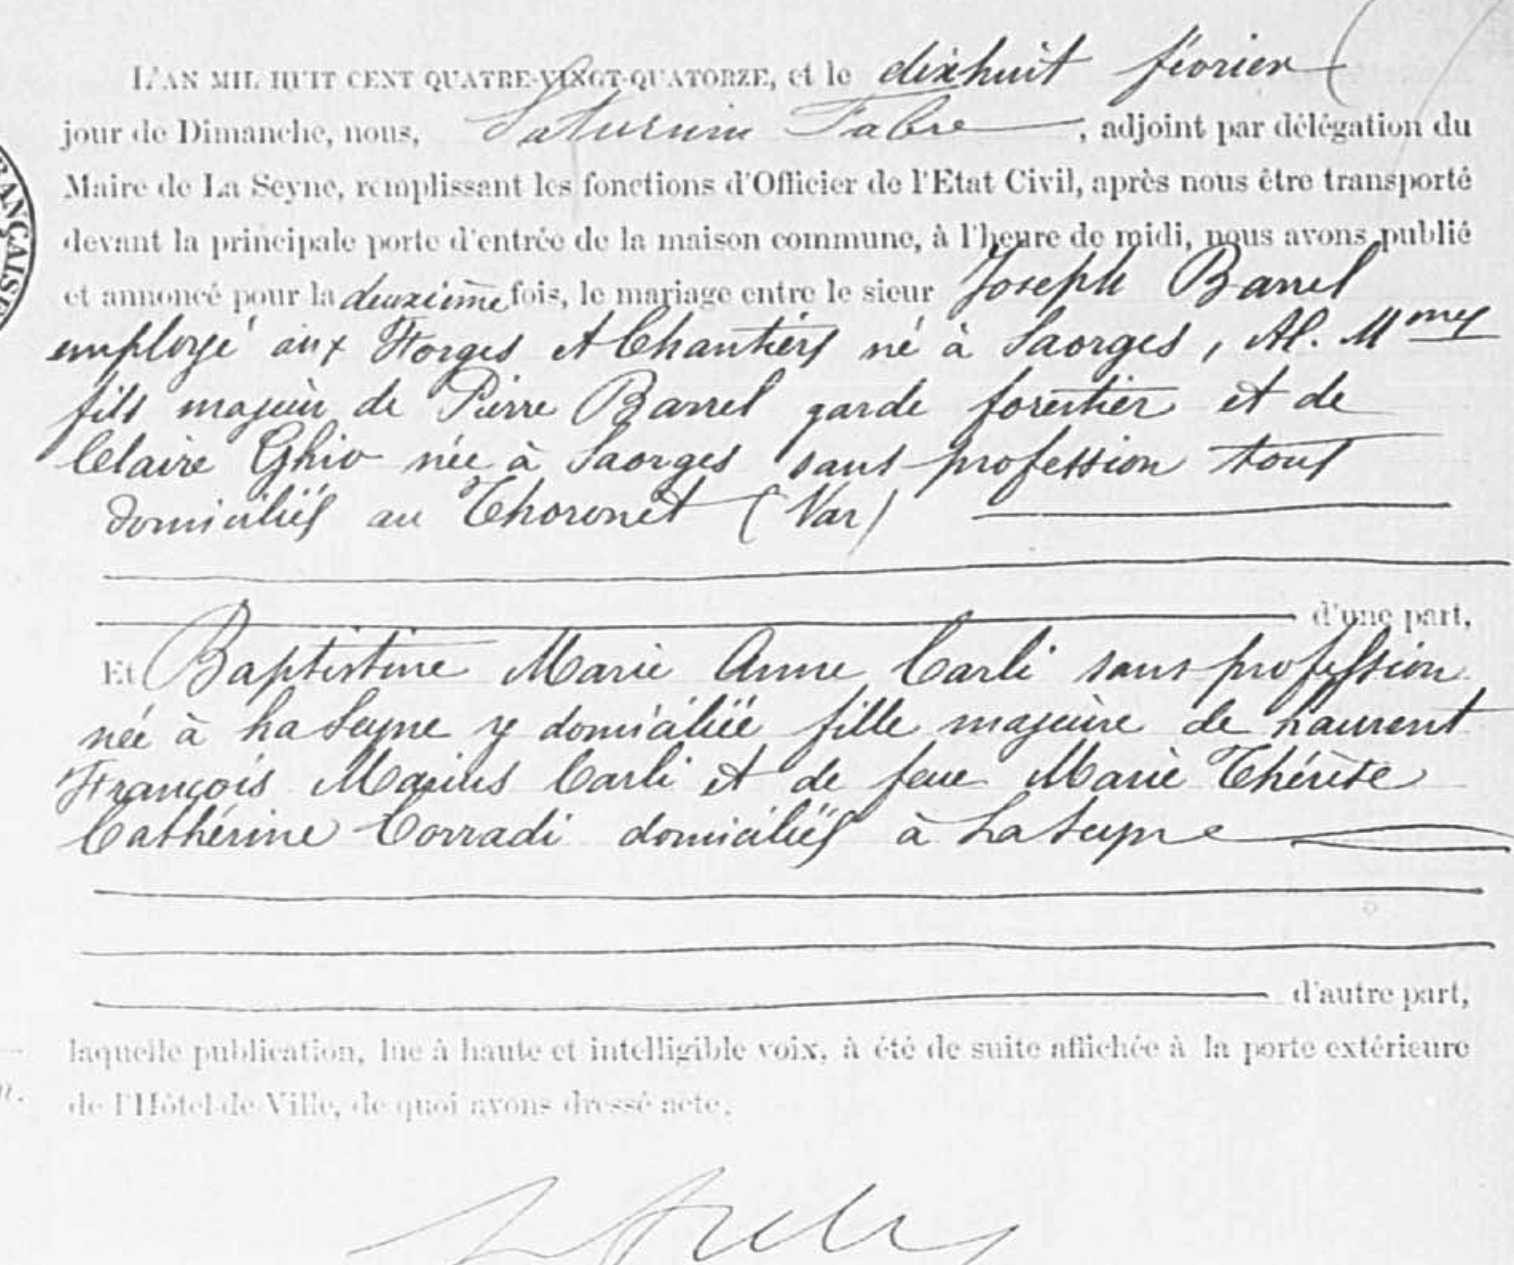 L'AN MIL HUIT CENT QUATRE-VINGT-QUATORZE, et le dixhuit février
jour de Dimanche, nous, Saturnin Fabre, adjoint par délégation du
Maire de La Seyne, remplissant les fonctions d'Officier de l'Etat Civil, après nous être transporté
devant la principale porte d'entrée de la maison commune, à l'heure de midi, nous avons publié
et annoncé pour la deuxième fois, le mariage entre le sieur Joseph Barrel
employé aux Forges et Chantiers né à Saorges, Al. Mmes
fils majeur de Pierre Barrel garde forestier et de
Claire Ghio née à Saorges sans profession tous
domiciliés au Thoronet (Var)
d'une part,
Et Baptistine Marie Anne Carli sans profession
née à La Seyne y domiciliée fille majeure de Laurent
François Marius Carli et de feue Marie Thérèse
Cathérine Corradi domiciliés à La Seyne
d'autre part,
laquelle publication, lue à haute et intelligible voix, à été de suite affichée à la porte extérieure
de l'Hôtel-de-Ville, de quoi avons dressé acte.